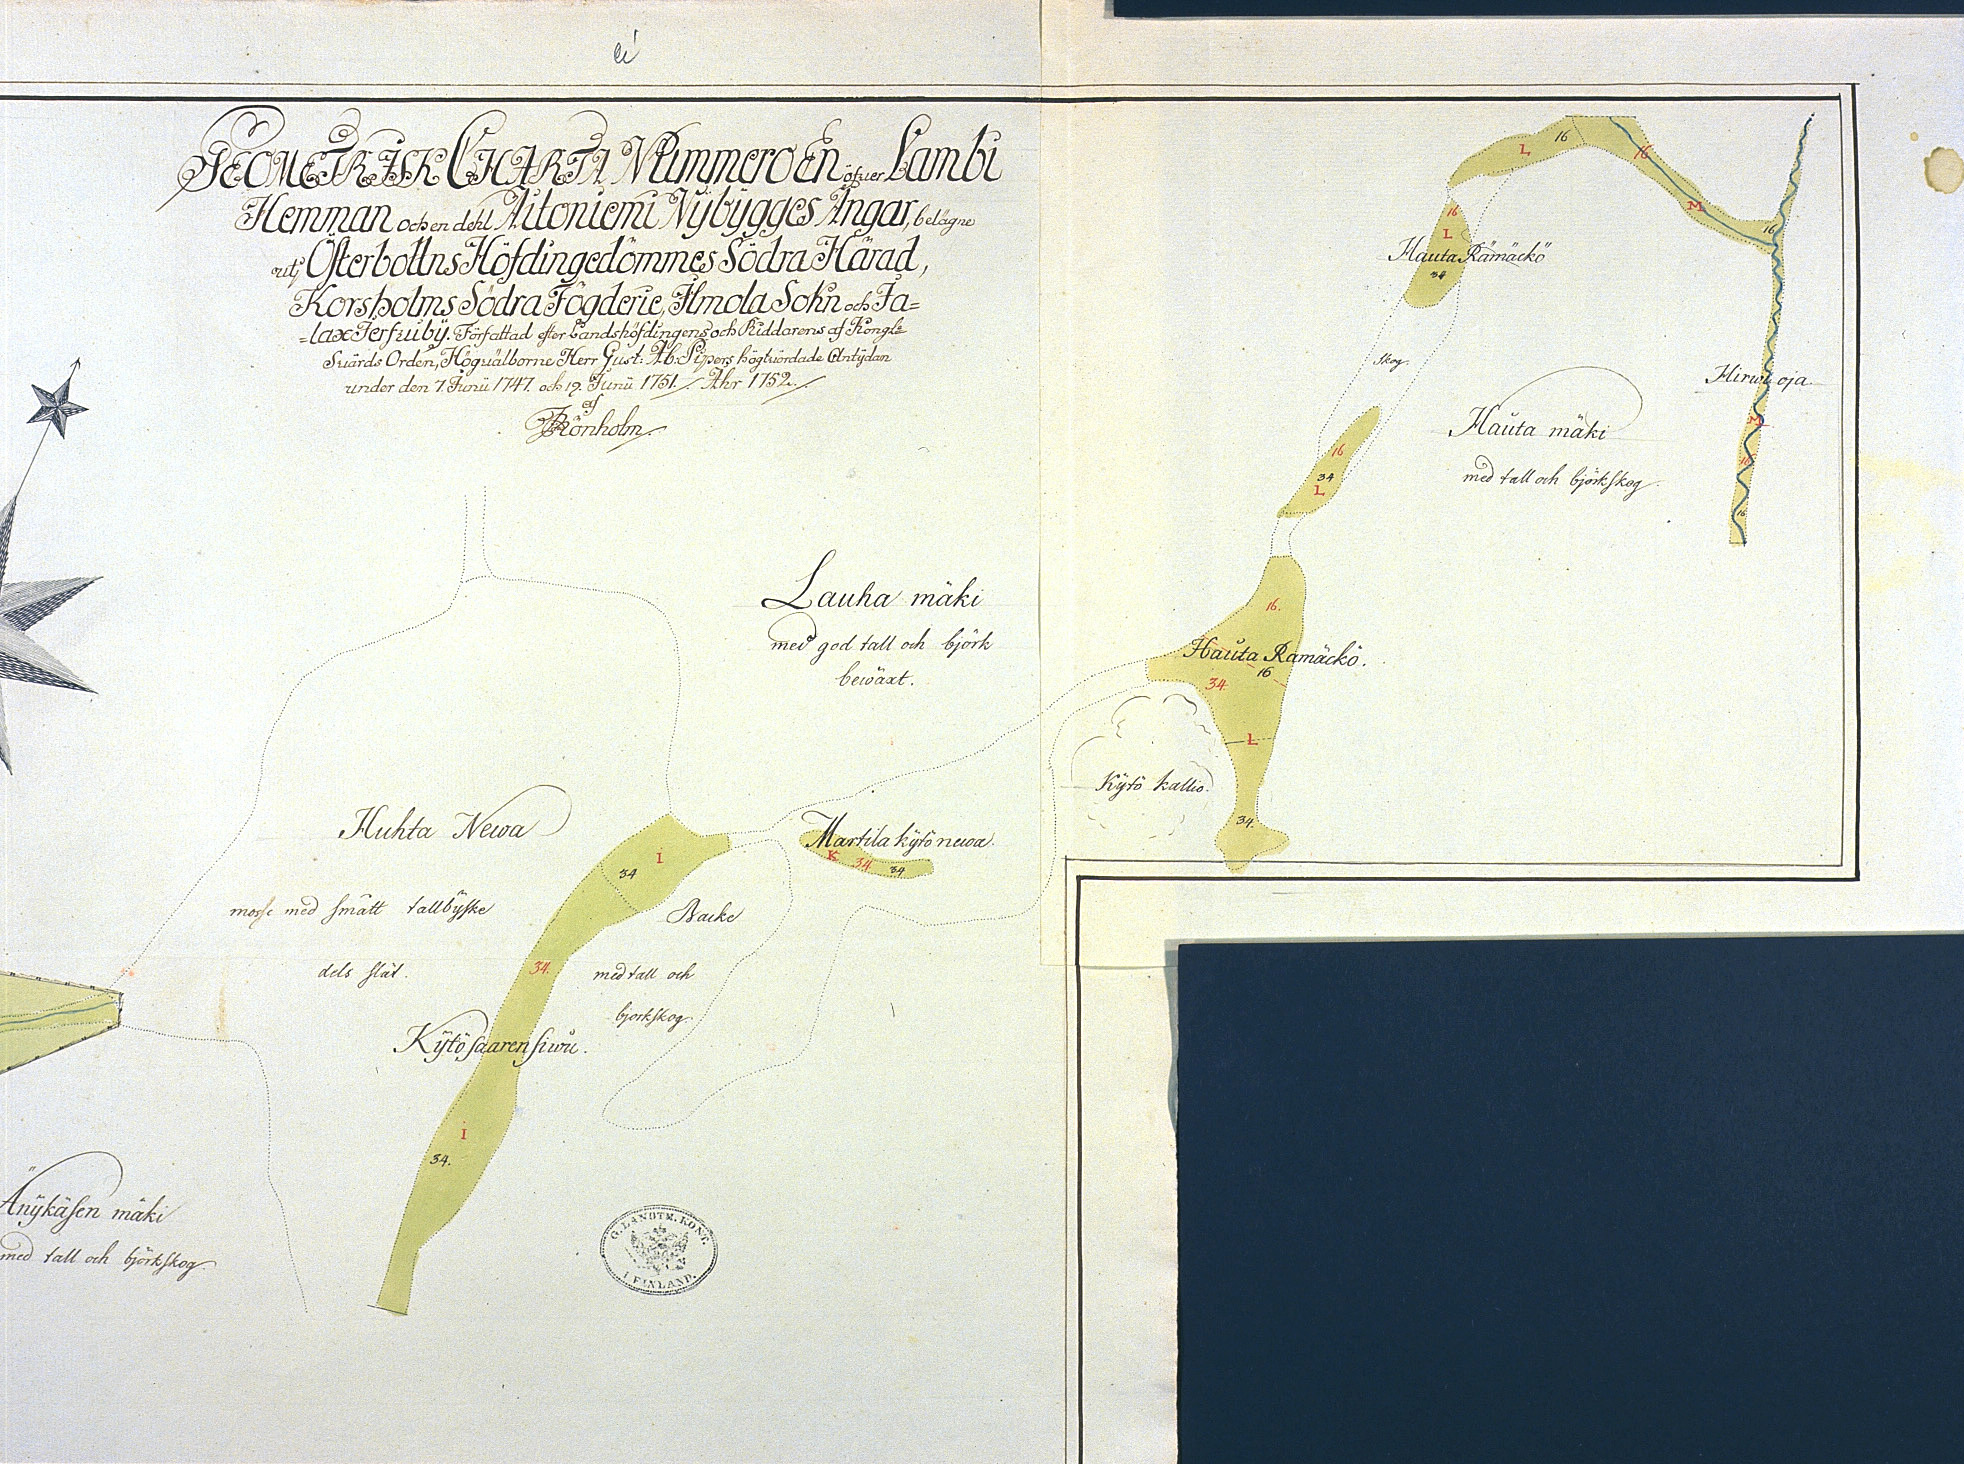 ei
GEOMETRISK CHARTA Nummero En öfwer Lambi
Hemman och en dehl Aitoniemi Nÿbÿgges Ängar, belägne
uti Österbottns Höfdingedömmes Södra Härad,
Korsholms Södra Fögderie, Ilmola Sokn och Ja-
-lax Jerfwibÿ. Författad efter Landshöfdingens och Riddarens af Kongl:
Swärds Orden, Högwälborne Herr Gust: Ab: Pipers högtwördade Antÿdan
under den 7. Junii 1747. och 19. Junii 1751. Åhr 1752.
af
Rönholm.
16
L
16
16
L
M
16
Hauta Rämäckö
34
skog.
Hirwi oja.
Hauta mäki
med tall och björkskog.
M
16
16
16
34
L
Lauha mäki
med god tall och björk
bewäxt.
16.
Hauta Ramäckö.
16
34
L
Kÿtö kallio.
34.
Huhta Newa
mosse med smått tallbÿske
dels slät.
I
34
Martila kÿtö newa.
K
34
34
Backe
med tall och
björkskog.
34.
Kÿtösaarensiwu.
I
34.
Änÿkäsen mäki
med tall och björkskog.
G. LANDTM. KONT.
I FINLAND.